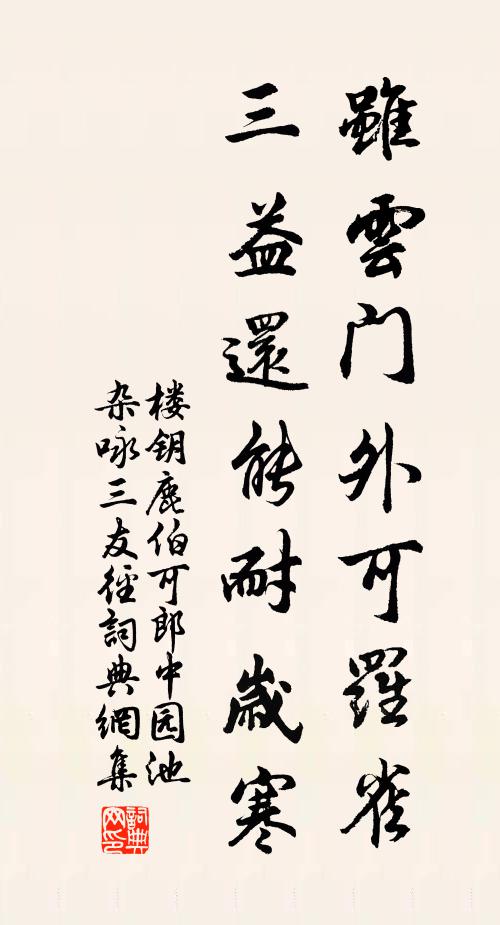 雖雲門外可羅雀
三益還能耐歲寒
楼钥鹿伯可郎中园池
杂咏三友徑詞典網集
詞典
网印